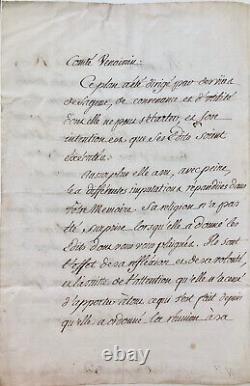 Comté Venaissin.
Ce plan a été dirigé par des vues
de sagesse, de convenance et d'utilité
dont elle ne peut s'écarter, et son
intention est que ses Edits soient
exécutés.
Au surplus elle a vu, avec peine,
les différentes imputations répandues dans
votre Memoire. Sa religion n'a pas
été surprise lorsqu'elle a donné les
Edits dont vous vous plaignés. Ils sont
l'effet de sa réflexion et de sa volonté,
et la suite de l'attention qu'elle n'a cessé
d'apporter à tout ce qui s'est fait depuis
qu'elle a ordonné la réunion à sa